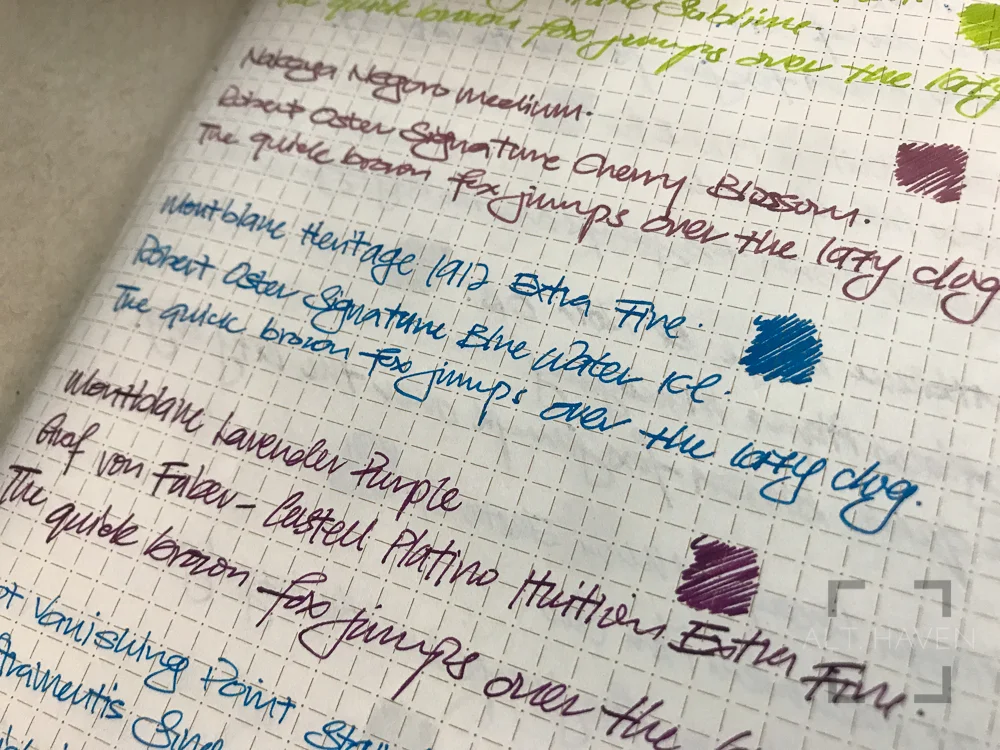 The quick brown fox jumps over the lazy
Nakaya Negoro medium.
Robert Oster Signature Cherry Blossom.
The quick brown fox jumps over the lazy dog
Montblanc Heritage 1912 Extra Fine.
Robert Oster Signature Blue Water Ice.
The quick brown fox jumps over the lazy dog.
Montblanc Lavender Purple
Graf von Faber-Castell Platino Extra Fine.
The quick brown fox jumps over the
ot Vanishing Point
tramentis
ALT HAVEN